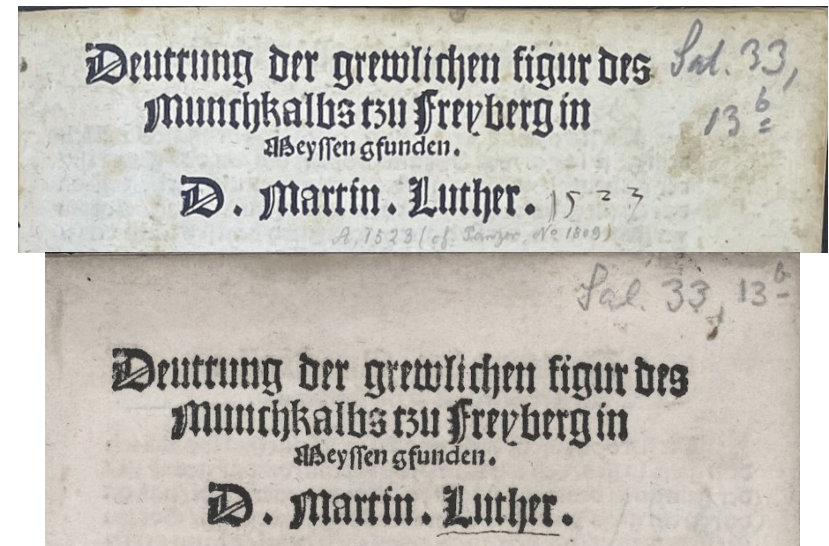 Deuttung der grewlichen figur des
Sal. 33,
Munchkalbs tzu Freyberg in
13 b
Meyssen gfunden.
D. Martin. Luther. 1523
A, 1523 (cf. Panzer, No 1809)
Sal. 33, 13 b
Deuttung der grewlichen figur des
Munchkalbs tzu Freyberg in
Meyssen gfunden.
D. Martin. Luther.